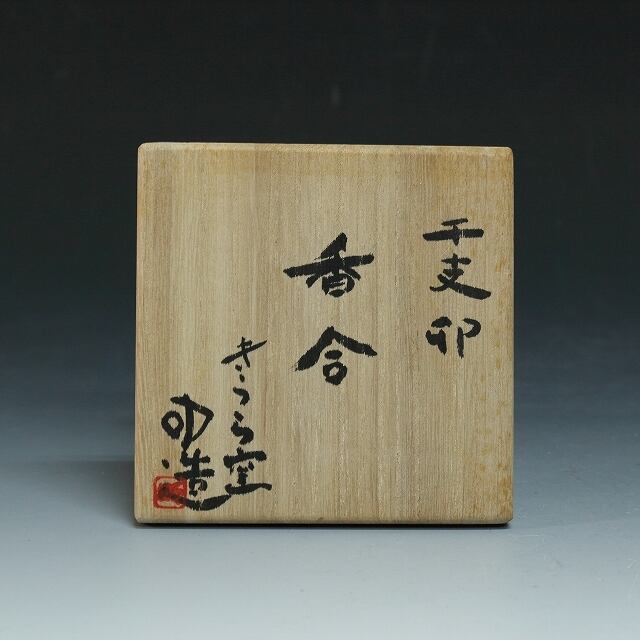 干支卯
香合
きつら窯
造